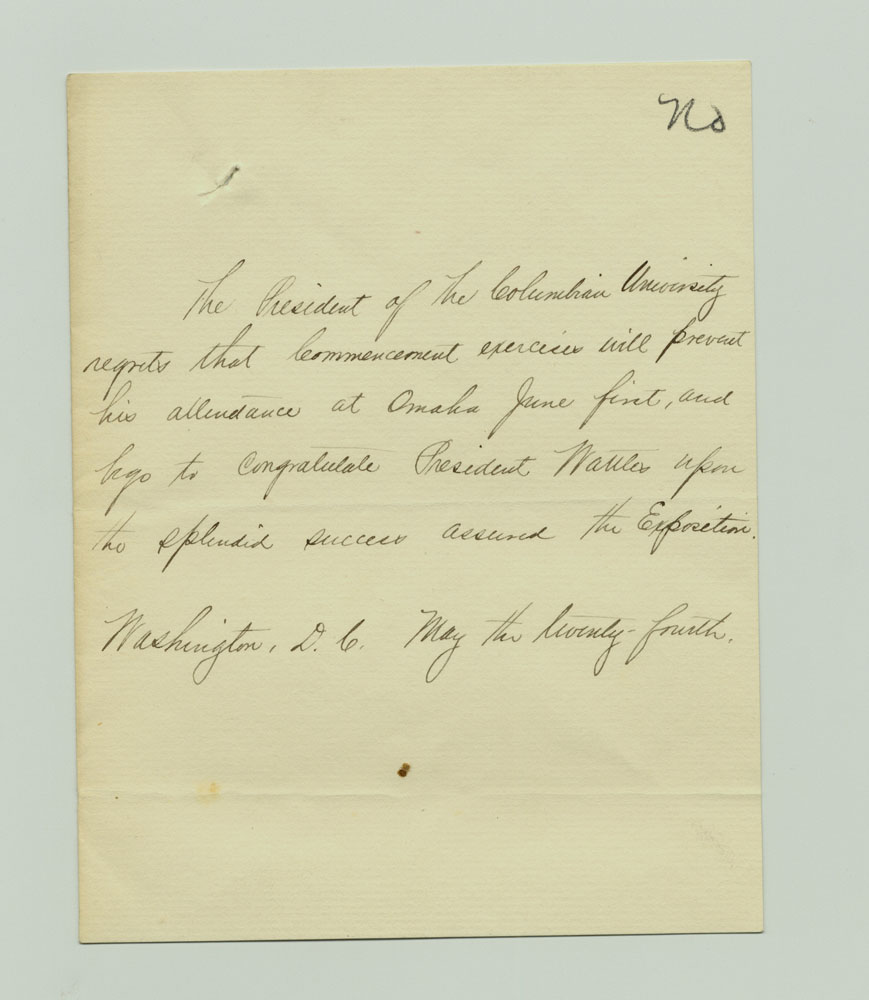 No
The President of the Columbian University
regrets that Commencement exercises will prevent
his attendance at Omaha June first, and
begs to congratulate President Wattles upon
the splendid success assured the Exposition.
Washington, D. C. May the twenty-fourth.